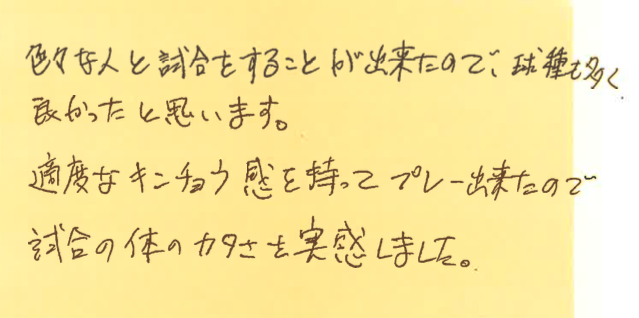 色々な人と試合をすることが出来たので、球種も多く
良かったと思います。
適度なキンチョウ感を持ってプレー出来たので
試合の体のカタさを実感しました。